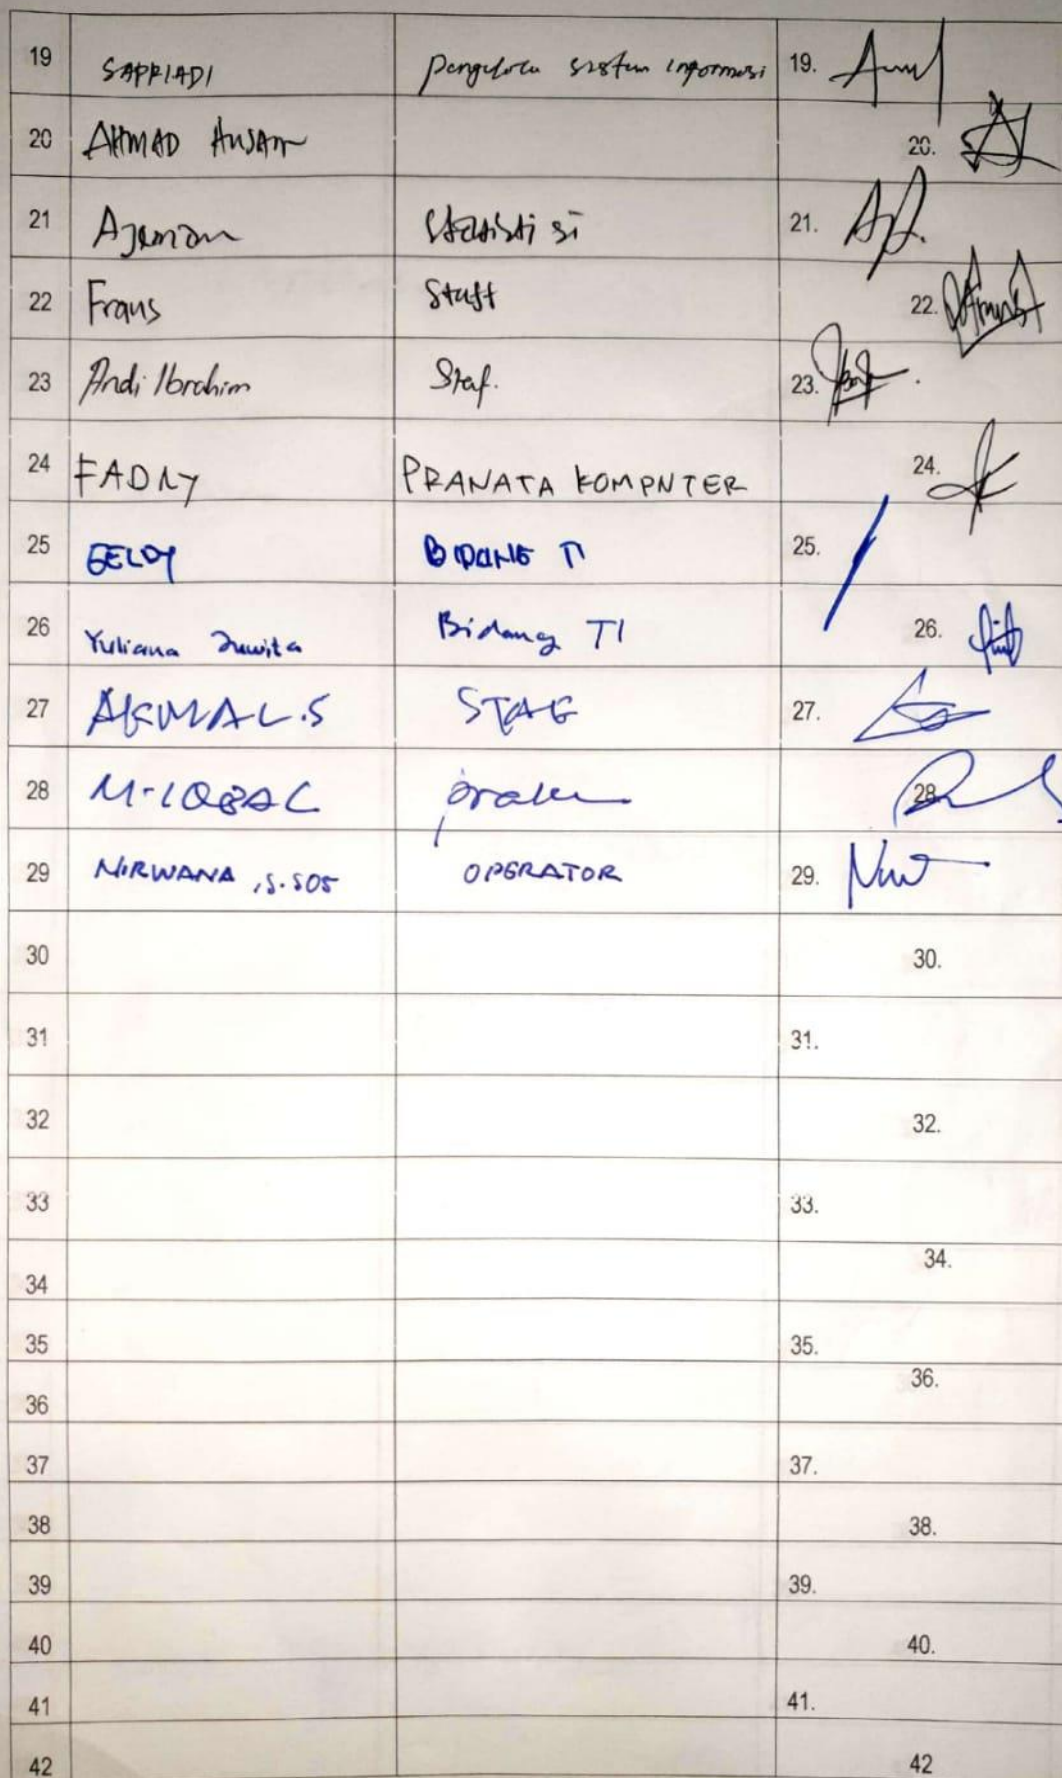 19 SAPRIADI pengelola sistem informasi 19.
20 AHMAD 20.
21 Ajeman Statisti si 21.
22 Frans Staff 22.
23 Andi Ibrahim Staf. 23.
24 FADLY PRANATA KOMPUTER 24.
25 BIDANG TI 25.
26 Yuliana Juwita Bidang TI 26.
27 AKMAL.S STAF 27.
28 M.IQBAL 28
29 NIRWANA ,S.SOS OPERATOR 29.
30 30.
31 31.
32 32.
33 33.
34 34.
35 35.
36 36.
37 37.
38 38.
39 39.
40 40.
41 41.
42 42